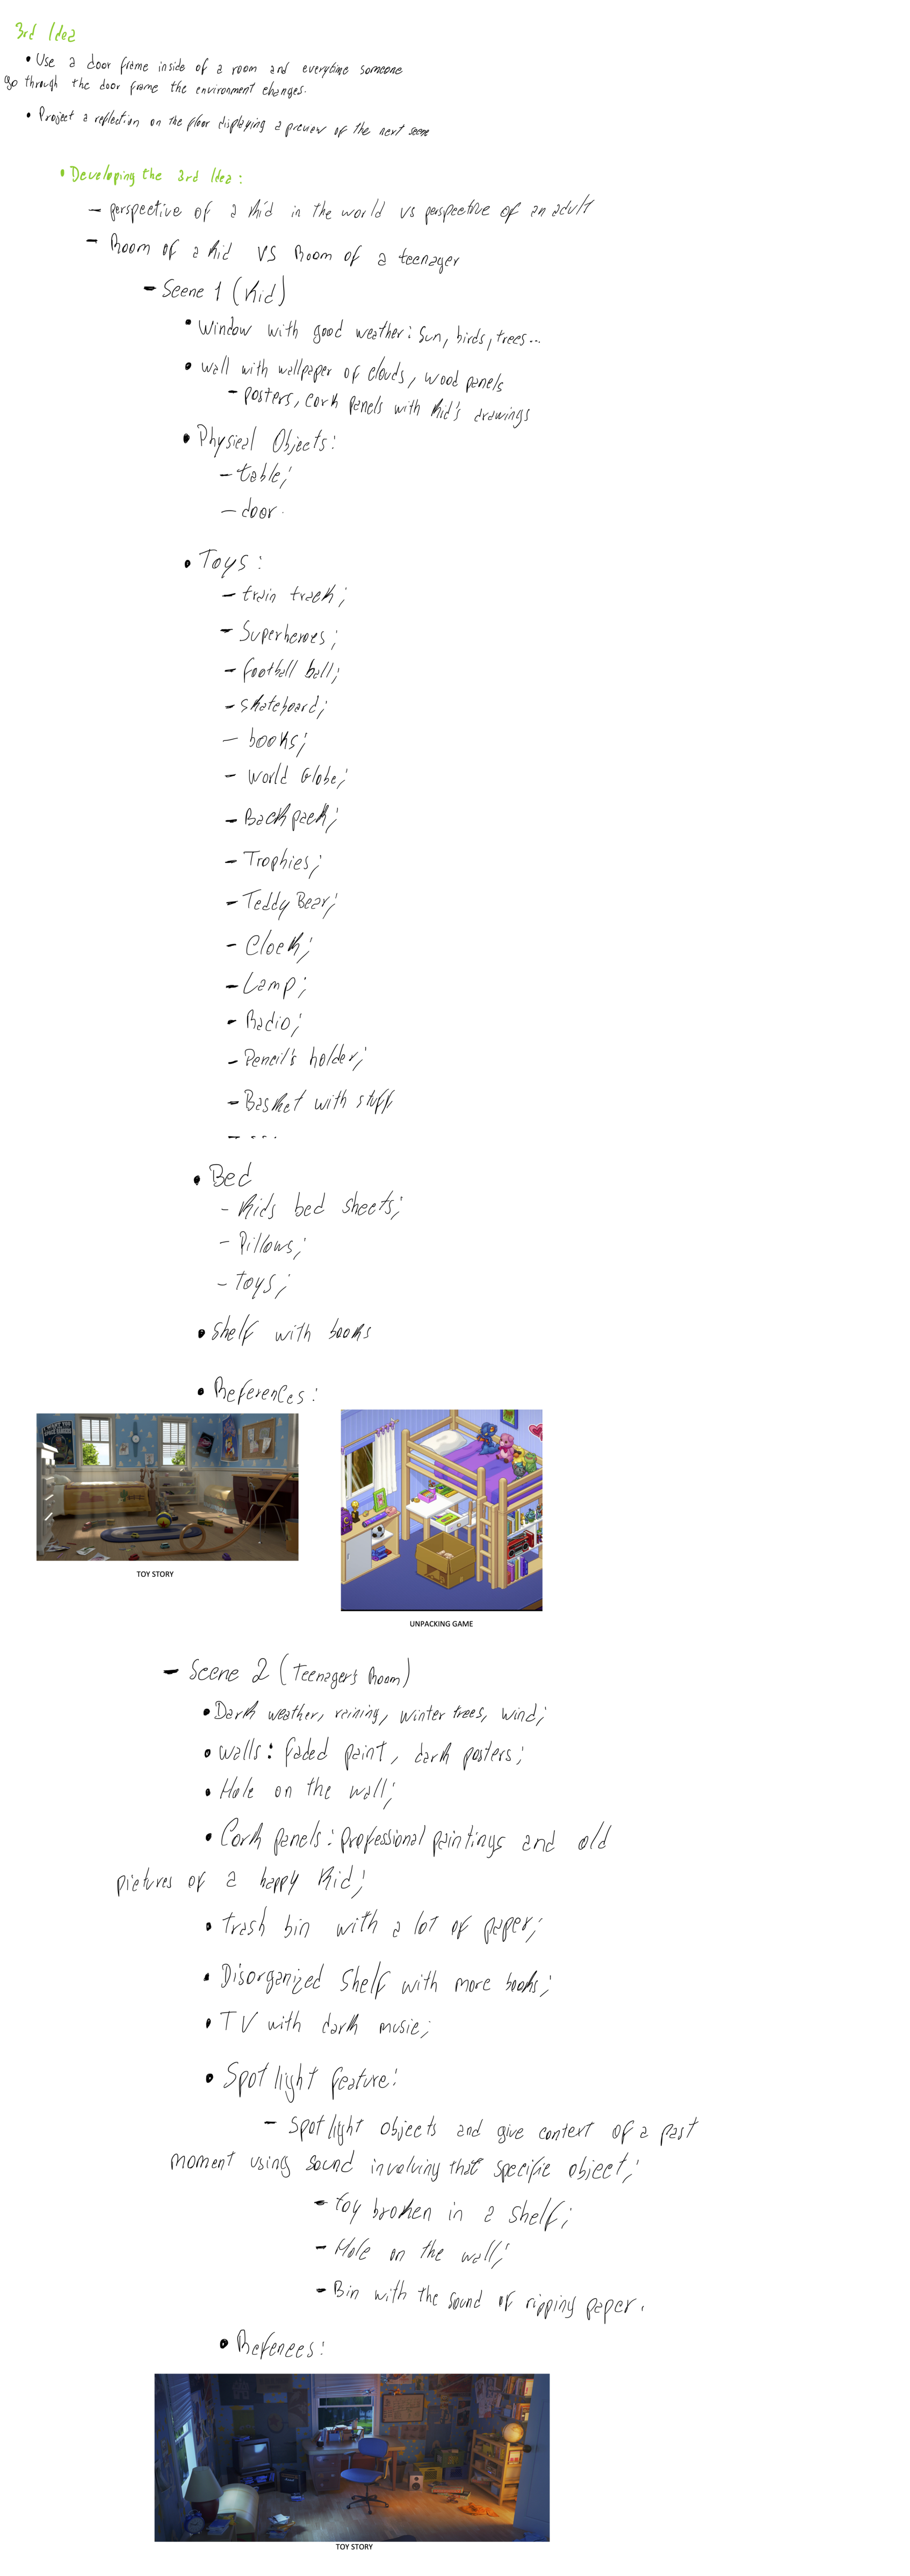 3rd Idea
• Use a door frame inside of a room and everytime someone
go through the door frame the environment changes.
• Project a reflection on the floor displaying a preview of the next scene
• Developing the 3rd Idea:
– perspective of a kid in the world vs perspective of an adult
– Room of a kid VS Room of a teenager
– Scene 1 (kid)
• Window with good weather: sun, birds, trees...
• wall with wallpaper of clouds, wood panels
– posters, cork panels with kid's drawings
• Physical Objects:
– table;
– door.
• Toys:
– train track;
– Superheroes;
– football ball;
– skateboard;
– books;
– World Globe;
– Backpack;
– Trophies;
– Teddy Bear;
– Clock;
– Lamp;
– Radio;
– Pencil's holder;
– Basket with stuff
– ....
• Bed
– Kids bed sheets;
– Pillows;
– toys;
• Shelf with books
• References:
TOY STORY
UNPACKING GAME
– Scene 2 (Teenager's Room)
• Dark weather, raining, winter trees, wind;
• walls: faded paint, dark posters;
• Hole on the wall;
• Cork panels: professional paintings and old
pictures of a happy kid;
• trash bin with a lot of paper;
• Disorganized shelf with more books;
• TV with dark music;
• Spotlight feature:
– Spotlight objects and give context of a past
moment using sound involving that specific object;
– toy broken in a shelf;
– Hole on the wall;
– Bin with the sound of ripping paper.
• Refenees:
TOY STORY